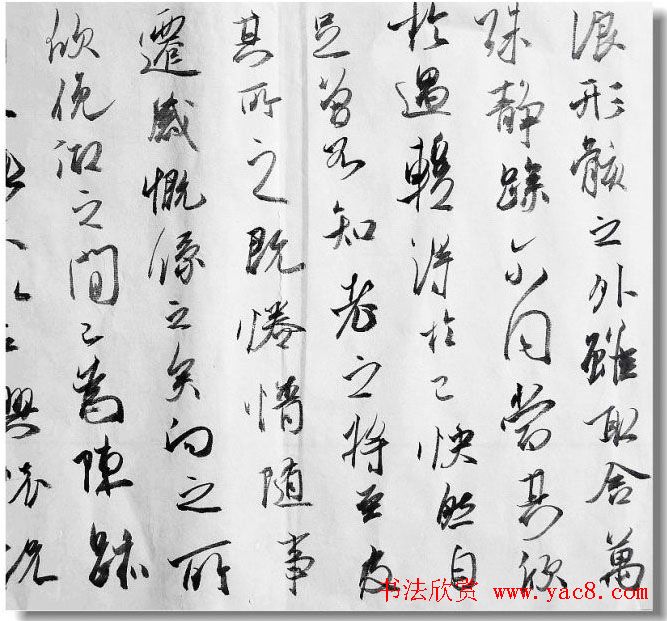 浪形骸之外雖取舍萬
殊静躁不同當其欣
於遇暫得於己快然自
足曾不知老之将至及
其所之既惓情随事
遷感慨係之矣向之所
欣俛仰之間已為陳跡
興懷况
书法欣赏 www.yac8.com